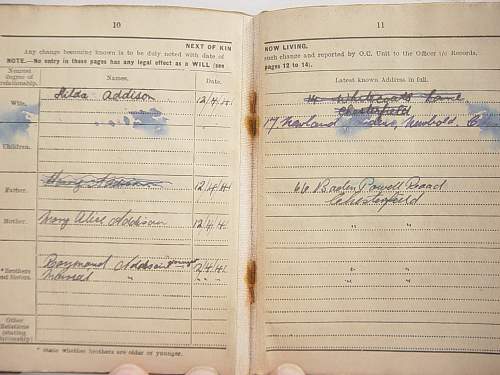 10
NEXT OF KIN
Any change becoming known is to be duly noted with date of
NOTE.—No entry in these pages has any legal effect as a WILL (see
Nearest degree of relationship.
Names.
Date.
Wife.
Hilda Addison
12/4/41
Children.
Father.
Harry Addison
12/4/41
Mother.
Mary Alice Addison
12/4/41
*Brothers and Sisters.
Raymond Addison
12/4/41
"
Other Relations (stating relationship)
* State whether brothers are older or younger.
11
NOW LIVING.
such change and reported by O.C. Unit to the Officer i/c Records.
pages 12 to 14).
Latest known Address in full.
Chesterfield
17 Newland Newbold
66 Baden Powell Road
Chesterfield
" "
" "
" "